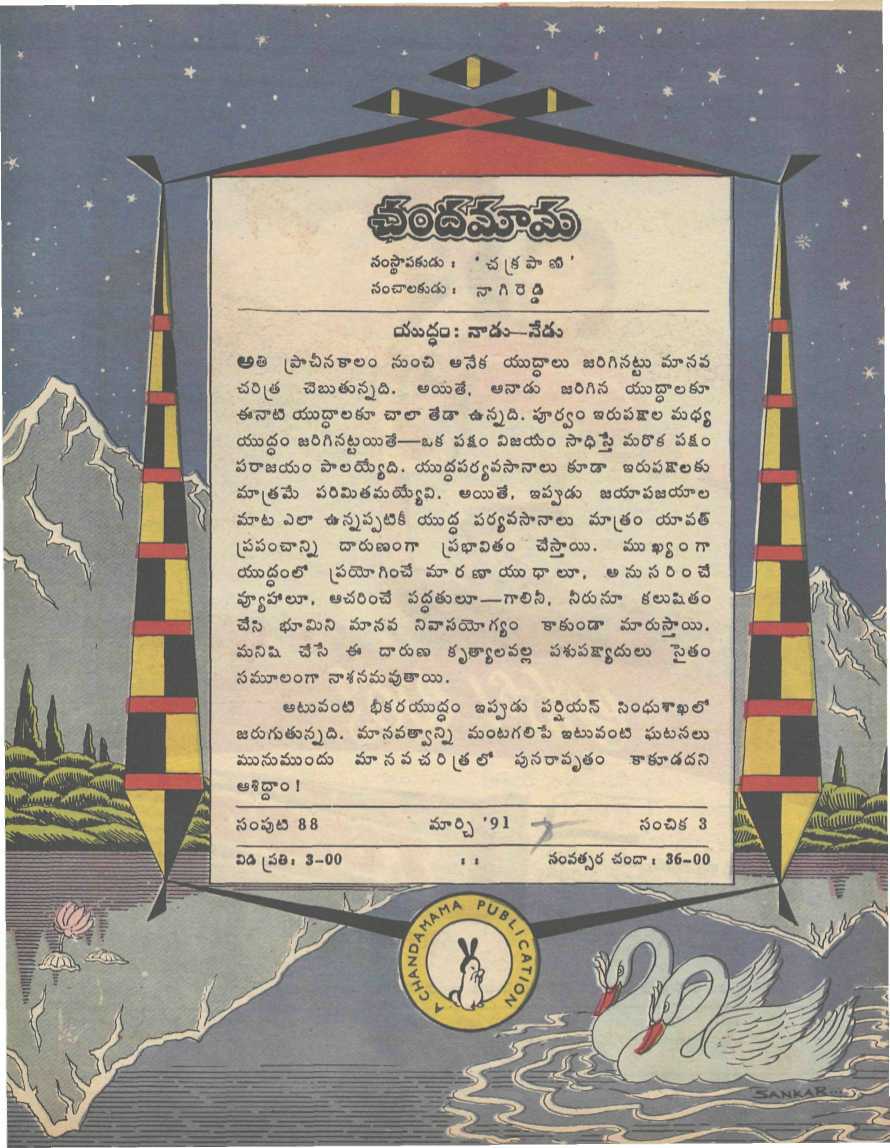 చందమామ
సంస్థాపకుడు : 'చక్రపాణి'
సంచాలకుడు : నాగిరెడ్డి
యుద్ధం : నాడు—నేడు
అతి ప్రాచీనకాలం నుంచి అనేక యుద్ధాలు జరిగినట్టు మానవ
చరిత్ర చెబుతున్నది. అయితే, ఆనాడు జరిగిన యుద్ధాలకూ
ఈనాటి యుద్ధాలకూ చాలా తేడా ఉన్నది. పూర్వం ఇరుపక్షాల మధ్య
యుద్ధం జరిగినట్టయితే—ఒక పక్షం విజయం సాధిస్తే మరొక పక్షం
పరాజయం పాలయ్యేది. యుద్ధపర్యవసానాలు కూడా ఇరుపక్షాలకు
మాత్రమే పరిమితమయ్యేవి. అయితే, ఇప్పుడు జయాపజయాల
మాట ఎలా ఉన్నప్పటికీ యుద్ధ పర్యవసానాలు మాత్రం యావత్
ప్రపంచాన్ని దారుణంగా ప్రభావితం చేస్తాయి. ముఖ్యంగా
యుద్ధంలో ప్రయోగించే మారణాయుధాలూ, అనుసరించే
వ్యూహాలూ, ఆచరించే పద్ధతులూ—గాలినీ, నీరునూ కలుషితం
చేసి భూమిని మానవ నివాసయోగ్యం కాకుండా మారుస్తాయి.
మనిషి చేసే ఈ దారుణ కృత్యాలవల్ల పశుపక్ష్యాదులు సైతం
సమూలంగా నాశనమవుతాయి.
అటువంటి భీకరయుద్ధం ఇప్పుడు పర్షియన్ సింధుశాఖలో
జరుగుతున్నది. మానవత్వాన్ని మంటగలిపే ఇటువంటి ఘటనలు
మునుముందు మానవచరిత్రలో పునరావృతం కాకూడదని
ఆశిద్దాం !
సంపుటి 88 మార్చి '91 సంచిక 3
విడి ప్రతి : 3-00 : : సంవత్సర చందా : 36-00
A CHANDAMAMA PUBLICATION
SANKAR...